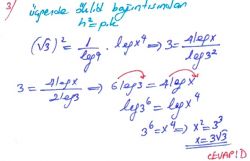 3) üçgende Öklid bağıntısından
h² = p.k
(√3)² = 1/log9 · logx⁴ ⇒ 3 = 4logx/log3²
3 = 4logx/2log3 ⇒ 6log3 = 4logx
log3⁶ = logx⁴
3⁶ = x⁴ ⇒ x² = 3³
x = 3√3
CEVAP D